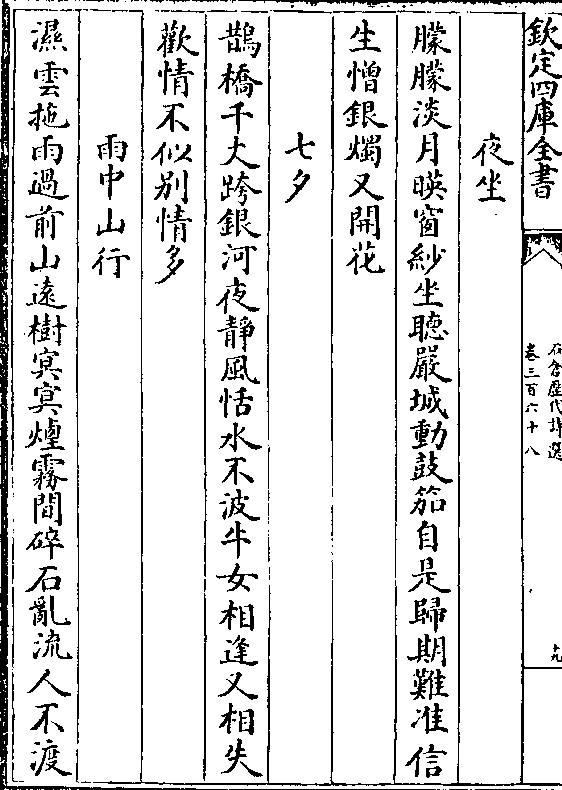 欽定四庫全書
石倉歷代詩選
卷三百六十八
十九
夜坐
朦朦淡月暎窗紗坐聽嚴城動鼓笳自是歸期難准信
生憎銀燭又開花
七夕
鵲橋千丈跨銀河夜靜風恬水不波牛女相逢又相失
歡情不似别情多
雨中山行
濕雲拖雨過前山逺樹冥冥煙霧間碎石亂流人不渡